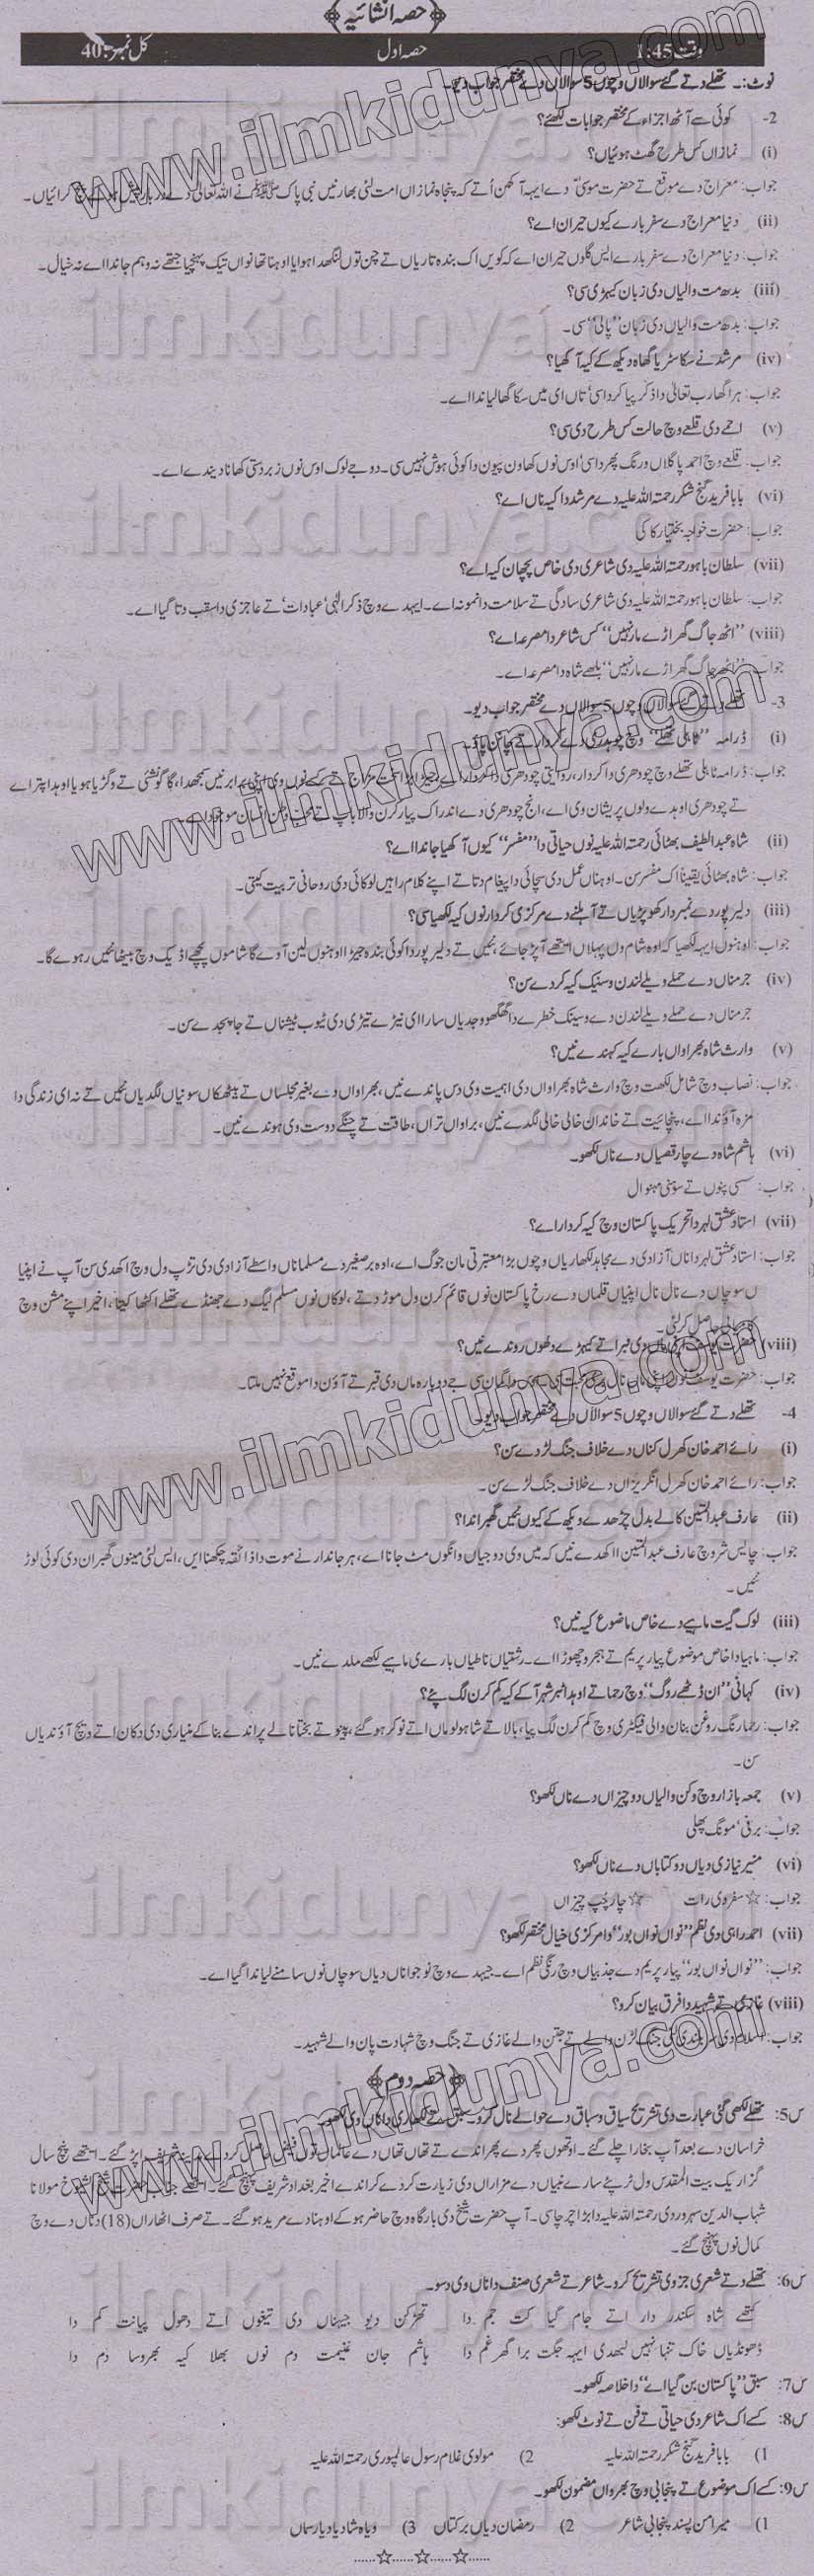 حصہ انشائیہ
وقت 1:45 حصہ اول کل نمبر: 40
نوٹ:۔ تھلے دتے گئے سوالاں وچوں 5 سوالاں دے مختصر جواب دیو۔
2- کوئی سے آٹھ اجزاء کے مختصر جوابات لکھئے؟
(i) نمازاں کس طرح گھٹ ہوئیاں؟
جواب: معراج دے موقع تے حضرت موسیٰؑ دے ایہہ آکھن اُتے کہ پنجاہ نمازاں امت لئی بھار نیں نبی پاک ﷺ نے اللہ تعالیٰ دے کرائیاں۔
(ii) دنیا معراج دے سفر بارے کیوں حیران اے؟
جواب: دنیا معراج دے سفر بارے ایس گلوں حیران اے کہ کویں اک بندہ تاریاں تے چن توں لنگھدا ہویا اوہنا تھانواں تیک پہنچیا جتھے نہ وہم جاندا اے نہ خیال۔
(iii) بدھ مت والیاں دی زبان کیہڑی سی؟
جواب: بدھ مت والیاں دی زبان "پالی" سی۔
(iv) مرشد نے سکا سڑیا گھاہ دیکھ کے کیہ آکھیا؟
جواب: ہرا گھا رب تعالیٰ دا ذکر پیا کردا سی تاں ای میں سکا گھا لیاندا اے۔
(v) احمے دی قلعے وچ حالت کس طرح دی سی؟
جواب: قلعے وچ احمد پاگلاں ورنگ پھردا سی اوس نوں کھاون پیون دا کوئی ہوش نہیں سی۔ دوجے لوک اوس نوں زبردستی کھانا دیندے اے۔
(vi) بابا فرید گنج شکر رحمتہ اللہ علیہ دے مرشد دا کیہ ناں اے؟
جواب: حضرت خواجہ بختیار کاکی
(vii) سلطان باہو رحمتہ اللہ علیہ دی شاعری دی خاص پچھان کیہ اے؟
جواب: سلطان باہو رحمتہ اللہ علیہ دی شاعری سادگی تے سلامت دا نمونہ اے۔ ایہدے وچ ذکر الٰہی، عبادات، تے عاجزی دا سبق دتا گیا اے۔
(viii) "اٹھ جاگ گھراڑے مار نہیں" کس شاعر دا مصرعہ اے؟
جواب: "اٹھ جاگ گھراڑے مار نہیں" بلھے شاہ دا مصرعہ اے۔
3- تھلے دتے گئے سوالاں وچوں 5 سوالاں دے مختصر جواب دیو۔
(i) ڈرامہ "ٹاہلی تھلے" وچ چوہدری دے کردار تے چانن پاؤ۔
جواب: ڈرامہ ٹاہلی تھلے وچ چودھری دا کردار، روایتی چودھری دا کردار اے، برابر نہیں سمجھدا، گاؤ تے وگڑیا ہویا اوہدا پتر اے
تے چودھری اوہدے ولوں پریشان وی اے، انج چودھری دے اندر اک پیار کرن والا باپ تے انسان موجود اے۔
(ii) شاہ عبدالطیف بھٹائی رحمتہ اللہ علیہ نوں حیاتی دا "مفسر" کیوں آکھیا جاندا اے؟
جواب: شاہ بھٹائی یقیناً اک مفسر سن۔ اوہناں عمل دی سچائی دا پیغام دتا تے اپنے کلام راہیں لوکائی دی روحانی تربیت کیتی۔
(iii) دلیر پور دے نمبردار کھوپڑیاں تے آہلنے دے مرکزی کردار نوں کیہ لکھیا سی؟
جواب: اوہنوں ایہہ لکھیا کہ اوہ شام وں پہلاں ایتھے آپڑ جائے، نئیں تے دلیر پور دا کوئی بندہ جیڑا اوہنوں لین آوے گا شاموں پچھے اڈیک وچ بیٹھا نئیں رہوے گا۔
(iv) جرمناں دے حملے ویلے لندن وسنیک کیہ کردے سن؟
جرمناں دے حملے ویلے لندن دے وسنیک خطرے دا گھگھو وجدیاں سار ای نیڑے تیڑی دی ٹیوب ٹیشناں تے جا پجدے سن۔
(v) وارث شاہ بھراواں بارے کیہ کہندے نیں؟
جواب: نصاب وچ شامل لکھت وچ وارث شاہ بھراواں دی اہمیت وی دس پاندے نیں، بھراواں دے بغیر مجلساں تے بیٹھکاں سونیاں لگدیاں نئیں تے نہ ای زندگی دا
مزہ آؤندا اے، پنچائیت تے خاندان خالی خالی لگدے نیں، براواں تراں، طاقت تے چنگے دوست وی ہوندے نیں۔
(vi) ہاشم شاہ دے چار قصیاں دے ناں لکھو۔
جواب: سسی پنوں تے سوہنی مہنوال
(vii) استاد عشق لہر دا تحریک پاکستان وچ کیہ کردار اے؟
جواب: استاد عشق لہر دا ناں آزادی دے مجاہد لکھاریاں وچوں بڑا معتبر تے مان جوگ اے، اوہ برصغیر دے مسلماناں واسطے آزادی دی تڑپ دل وچ رکھدے سن آپ نے اپنیا
ں سوچاں دے نال نال اپنیاں قلماں دے رخ پاکستان نوں قائم کرن ول موڑ دتے، لوکاں نوں مسلم لیگ دے جھنڈے تھلے اکٹھا کیتا، اخیر اپنے مشن وچ
حاصل کر لئی۔
(viii) حضرت یوسف اپنی ماں دی قبر اتے کیہڑے دکھوں روندے نیں؟
جواب: حضرت یوسف نوں اپنی ماں نال جے دوبارہ ماں دی قبر تے آؤن دا موقع نہیں ملنا۔
4- تھلے دتے گئے سوالاں وچوں 5 سوالاں دے مختصر جواب دیو۔
(i) رائے احمد خان کھرل کناں دے خلاف جنگ لڑدے سن؟
جواب: رائے احمد خان کھرل انگریزاں دے خلاف جنگ لڑے سن۔
(ii) عارف عبدالمتین کالے بدل چڑھدے دیکھ کے کیوں نئیں گھبراندا؟
جواب: چالیس شروچ عارف عبدالمتین اکھدے نیں کہ میں وی دوجیاں وانگوں مٹ جانا اے، ہر جاندار نے موت دا ذائقہ چکھنا ایں، ایس لئی مینوں گھبران دی کوئی لوڑ
نئیں۔
(iii) لوک گیت ماہیے دے خاص ماضوع کیہ نیں؟
جواب: ماہیا دا خاص موضوع پیار پریم تے ہجر وچھوڑا اے۔ رشتیاں ناطیاں بارے ی ماہیے لکھے ملدے نیں۔
(iv) کہانی "ان ڈٹھے روگ" وچ رحما تے اوہدا ٹبر شہر آ کے کیہ کم کرن لگ پئے؟
جواب: رحما رنگ روغن بنان والی فیکٹری وچ کم کرن لگ پیا، بالا تے شاہو لوماں اتے نوکر ہو گئے، پینو تے بختا نالے پراندے بنا کے منیاری دی دکان اتے ویچ آؤندیاں
سن۔
(v) جمعہ بازار وچ وکن والیاں دو چیزاں دے ناں لکھو؟
جواب: برفی، مونگ پھلی
(vi) منیر نیازی دیاں دو کتاباں دے ناں لکھو؟
جواب: ☆ سفر دی رات ☆ چار چپ چیزاں
(vii) احمد راہی دی نظم "نواں نواں بور" دا مرکزی خیال مختصر لکھو؟
جواب: "نواں نواں بور" پیار پریم دے جذبیاں وچ رنگی نظم اے۔ جیہدے وچ نوجواناں دیاں سوچاں نوں سامنے لیاندا گیا اے۔
(viii) غازی تے شہید دا فرق بیان کرو؟
جواب: اسلام دی سربلندی لئی جنگ لڑن والے تے جتن والے غازی تے جنگ وچ شہادت پان والے شہید۔
حصہ دوم
س5: تھلے لکھی گئی عبارت دی تشریح سیاق و سباق دے حوالے نال کرو۔ سبق تے لکھاری دا ناں وی لکھو۔
خراسان دے بعد آپ بخارا چلے گئے۔ اوتھوں پھردے پھراندے تے تھاں تھاں دے عالماں توں فیض حاصل کردے شریف اپڑ گئے۔ ایتھے پنج سال
گزار یک بیت المقدس ول ٹر پئے سارے نبیاں دے مزاراں دی زیارت کردے کراندے اخیر بغداد شریف پہنچ گئے۔ ایتھے حضرت شیخ الشیوخ مولانا
شہاب الدین سہروردی رحمتہ اللہ علیہ دا بڑا چرچا سی۔ آپ حضرت شیخ دی بارگاہ وچ حاضر ہو کے اوہنا دے مرید ہو گئے۔ تے صرف اٹھاراں (18) دناں دے وچ
کمال نوں پہنچ گئے۔
س6: تھلے دتے شعری جزوی تشریح کرو۔ شاعر تے شعری صنف دا ناں وی دسو۔
کتھے شاہ سکندر دار اتے جام گیا کت جم دا تھڑکن دیو جیہناں دی تیغوں اتے دھول پیانت کم دا
ڈھونڈیاں خاک تنہا نہیں لبھدی ایہہ جگت برا گھر غم دا ہاشم جان غنیمت دم نوں بھلا کیہ بھروسا دم دا
س7: سبق "پاکستان بن گیا اے" دا خلاصہ لکھو۔
س8: کسے اک شاعر دی حیاتی تے فن تے نوٹ لکھو:
1) بابا فرید گنج شکر رحمتہ اللہ علیہ 2) مولوی غلام رسول عالمپوری رحمتہ اللہ علیہ
س9: کسے اک موضوع تے پنجابی وچ بھرواں مضمون لکھو۔
1) میرا من پسند پنجابی شاعر 2) رمضان دیاں برکتاں 3) ویاہ شادیا دیا رسماں
......☆......☆......☆......
www.ilmkidunya.com
ilmkidunya.com